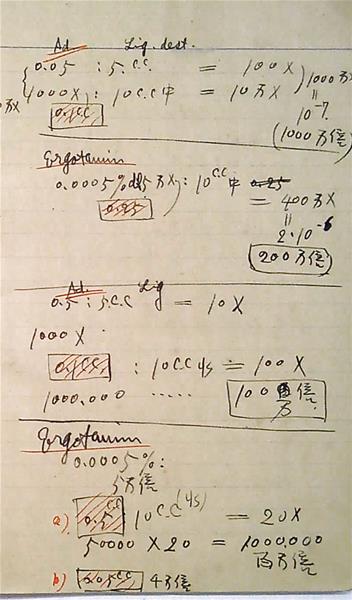 Ad. Liq. dest.
0.05 : 5.C.C. = 100X
4000X : 10C.C中 = 10万X
1000万X
0.1CC
10⁻⁷
(1000万倍)
Ergotamin
0.0005% : 10 C.C 中
= 400万X
2·10⁻⁶
200万倍
Ad. Liq
0.5 : 5.C.C = 10X
1000X
0.1CC : 10CC = 100X
1000.000 ..... 100万倍
Ergotamin
0.0005%:
5万倍
a) 0.5CC 10C.C = 20X
50000 X 20 = 1000,000
百万倍
b) 4万倍